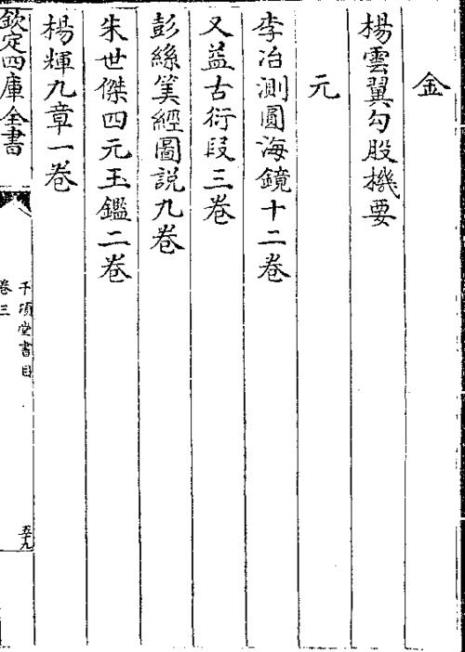 金
楊雲翼勾股機要
元
李冶測圓海鏡十二卷
又益古衍段三卷
彭絲筭經圖說九卷
朱世傑四元玉鑑二卷
楊輝九章一卷
欽定四庫全書
千頃堂書目
卷三
五十九